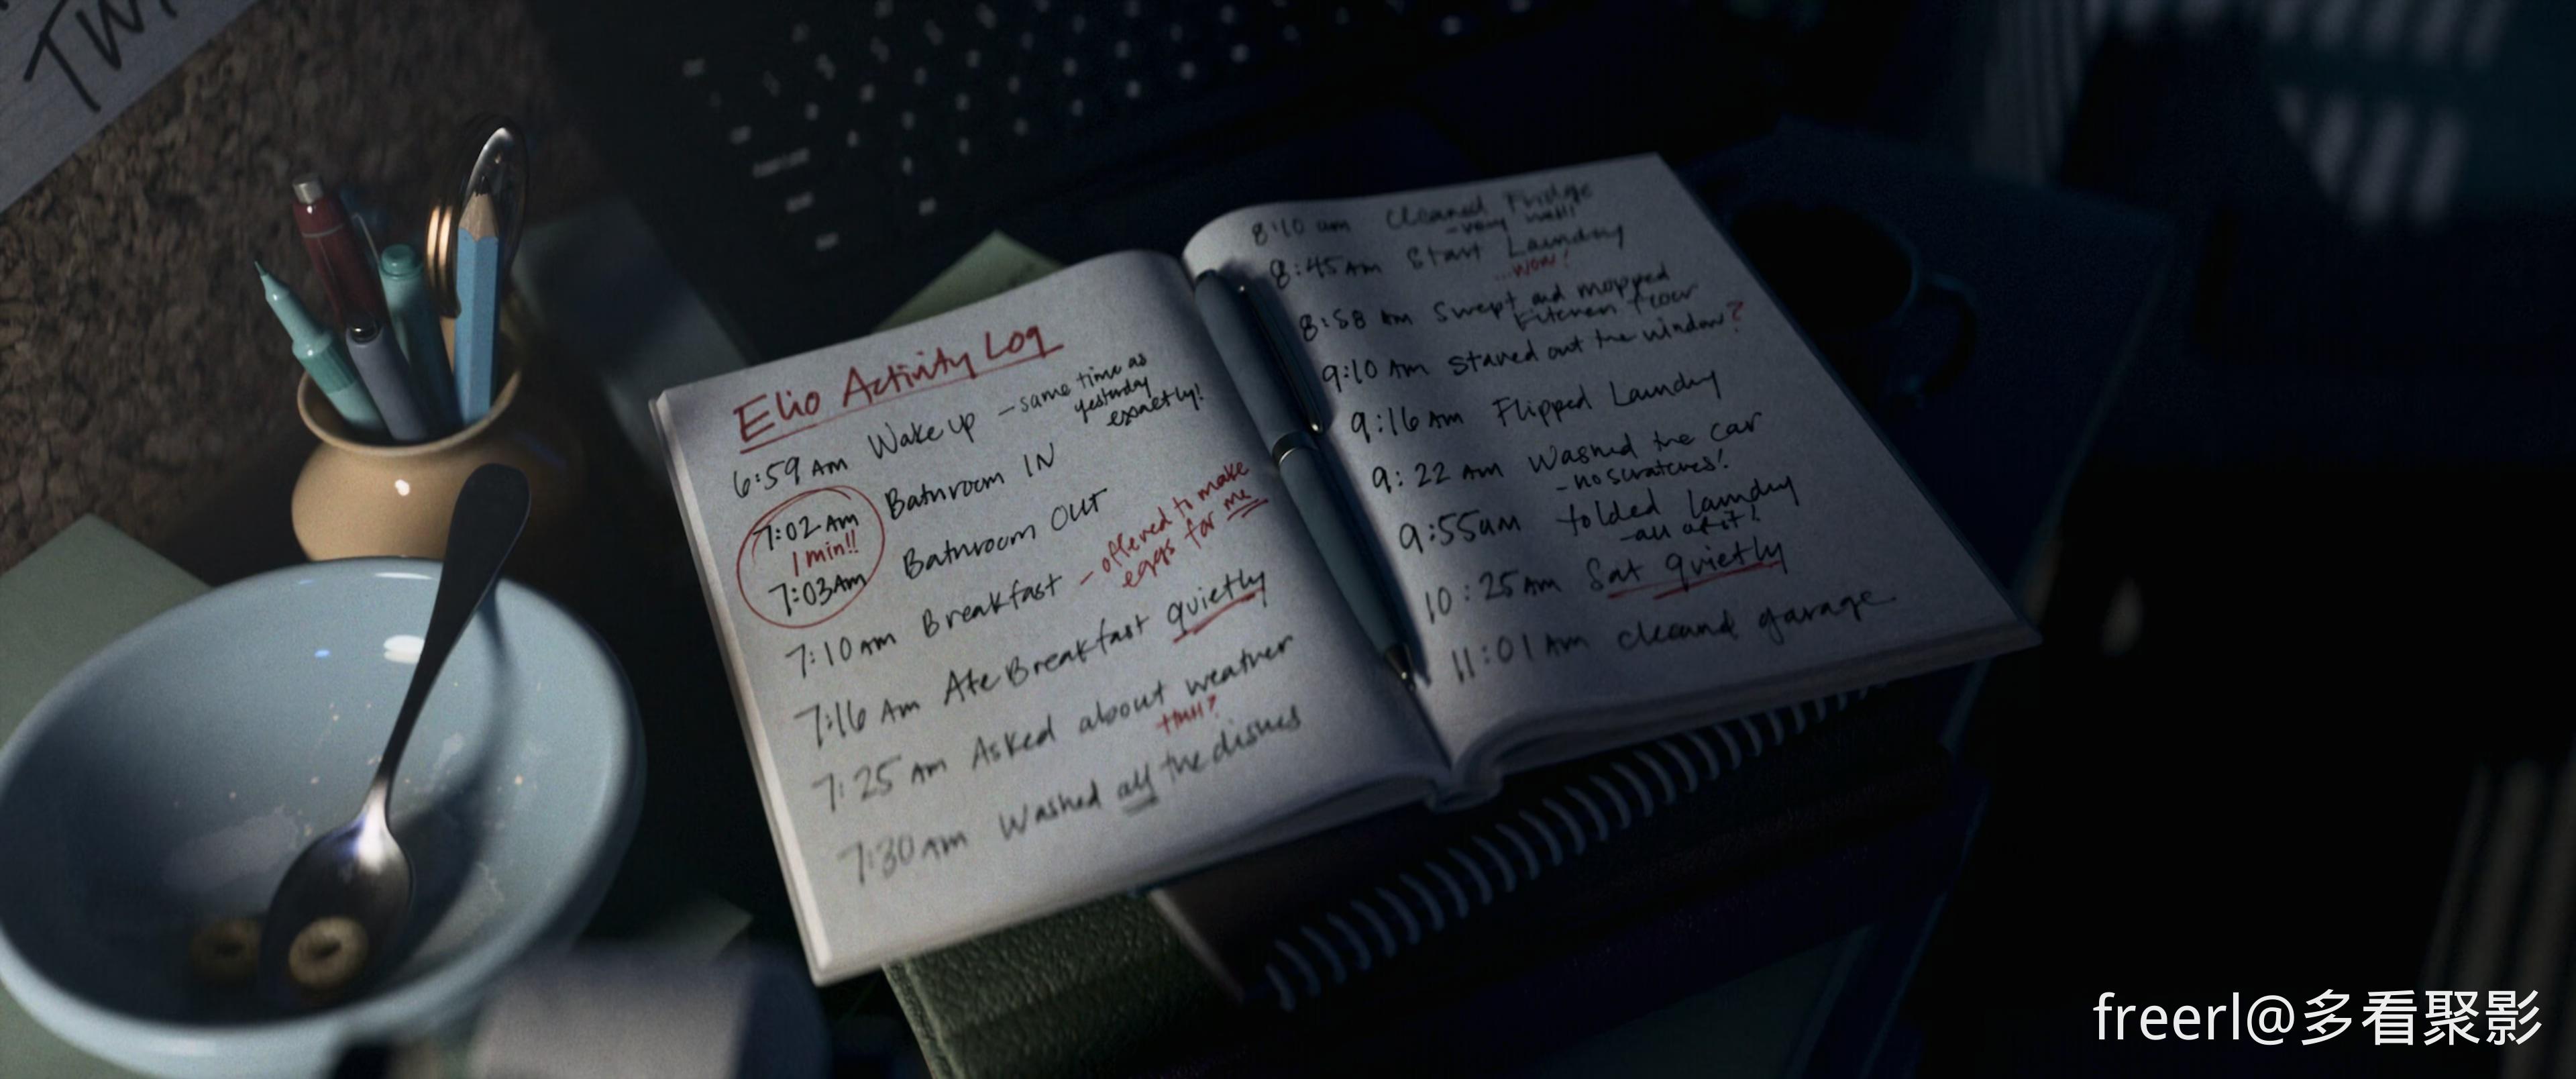 TW
Elio Activity Log
6:59 Am Wake up - same time as
yesterday
exactly!
7:02 Am Bathroom IN
1 min!!
7:03 Am Bathroom OUT
7:10 am Breakfast - offered to make
eggs for me
7:16 Am Ate Breakfast quietly
7:25 am Asked about weather
7:30 am Washed all the dishes
8:10 am Cleaned Fridge
- very well!
8:45 Am Start Laundry
...wow!
8:58 Am Swept and mopped
kitchen floor
9:10 Am Stared out the window?
9:16 Am Flipped Laundry
9:22 Am Washed the car
- no scratches!
9:55 am folded laundry
- all of it!
10:25 Am Sat quietly
11:01 Am cleaned garage
freerl@多看聚影